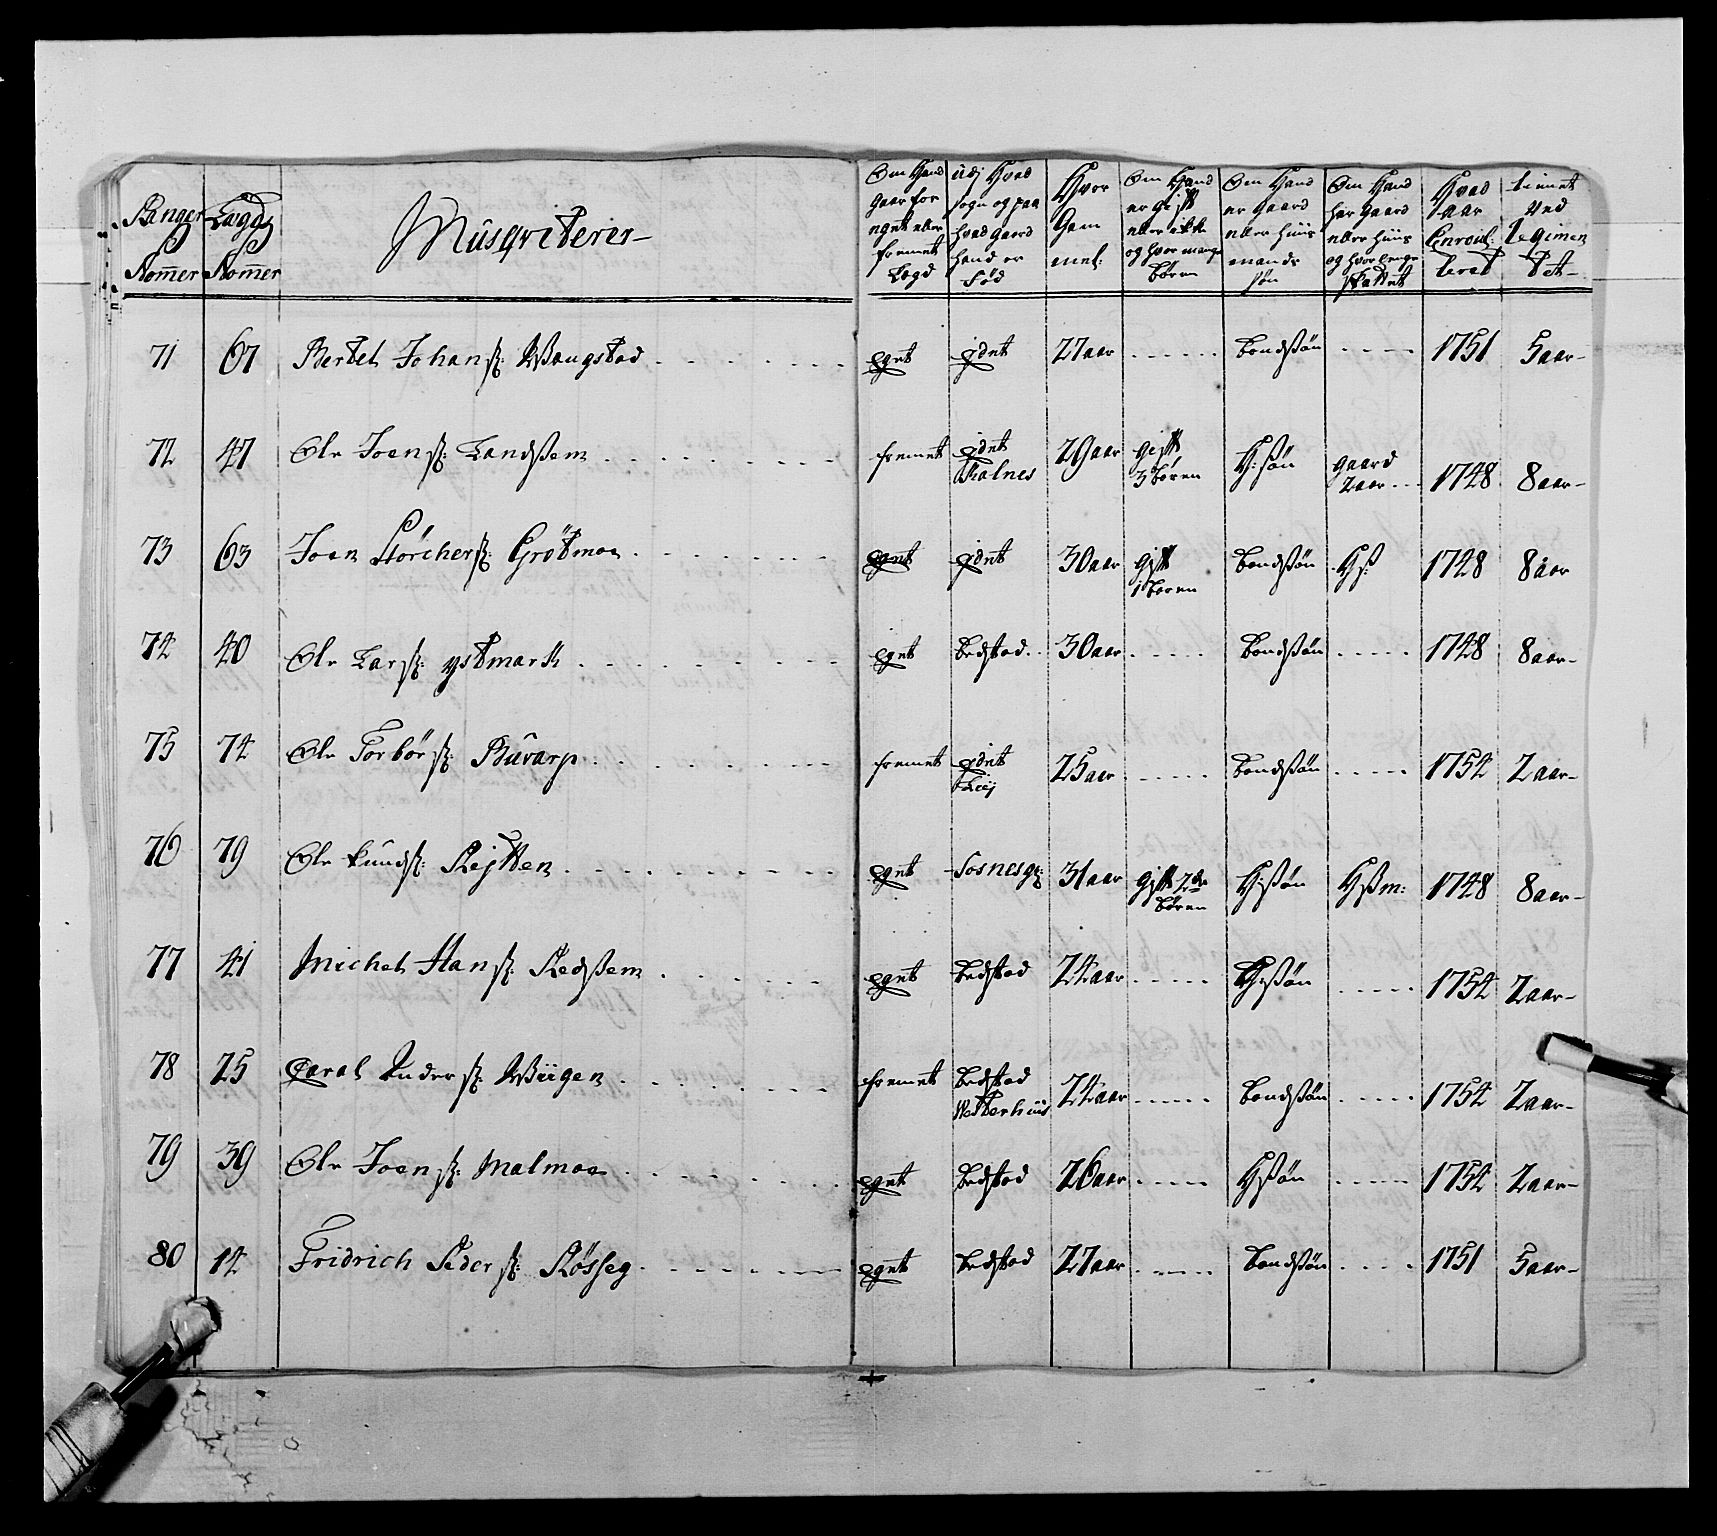 Ranger Nom̄er
Laegdz Nom̄er
Musqviterer
Om Hand gaar for eget eller fremet Legd
Udj Hvad sogn og paa hvad gaard hand er Fød
Hvor Gam mel:
Om Hand er gift eller ikke og hvor mange børen
Om Hand er gaard eller huus mands søn
Om Hand har gaard eller huus og hvor lenge skattet
Hvad aar Enroul: leret
tient ved Regimen tet
71 67 Bertel Johans: Wangstad eget ijdnt 27 aar bondssøn 1751 5 aar
72 47 Ole Joens: Landssem fremet ijdnt Kalnes 29 aar gift 3 børen H:søn gaard 2 aar 1748 8 aar
73 63 Joen Størchers: Grøtmoe eget ijdnt 30 aar gift 1 boren bondssøn Hs: 1748 8 aar
74 40 Ole Lars: ystmark eget bedstad 30 aar bondssøn 1748 8 aar
75 74 Ole Torbørs: Buvarp fremet ijdnt 25 aar bondssøn 1754 2 aar
76 79 Ole Knuds: Rejtten eget Fosnesgl: 31 aar gift 2de børen H:søn Hsm: 1748 8 aar
77 41 Michel Hans: Redssem eget bedstad 24 aar H:søn 1754 2 aar
78 25 Caral Anders: Wiigen fremet bedstad Westerhuus 24 aar bondssøn 1754 2 aar
79 39 Ole Joens: Malmoe eget bedstad 26 aar Hsøn 1754 2 aar
80 14 Fridrich Peders: Røsseg eget bedstad 27 aar bondssøn 1751 5 aar